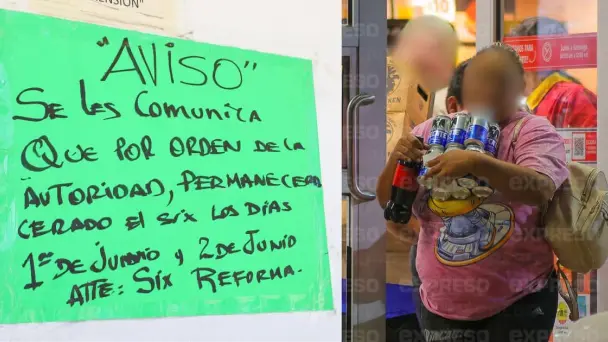 "AVISO"
Se Les Comunica
Que por orden de la
autoridad, permanecera
cerado el six los días
1ro de Junio y 2 de Junio
Atte: Six Reforma.
EXPRESO